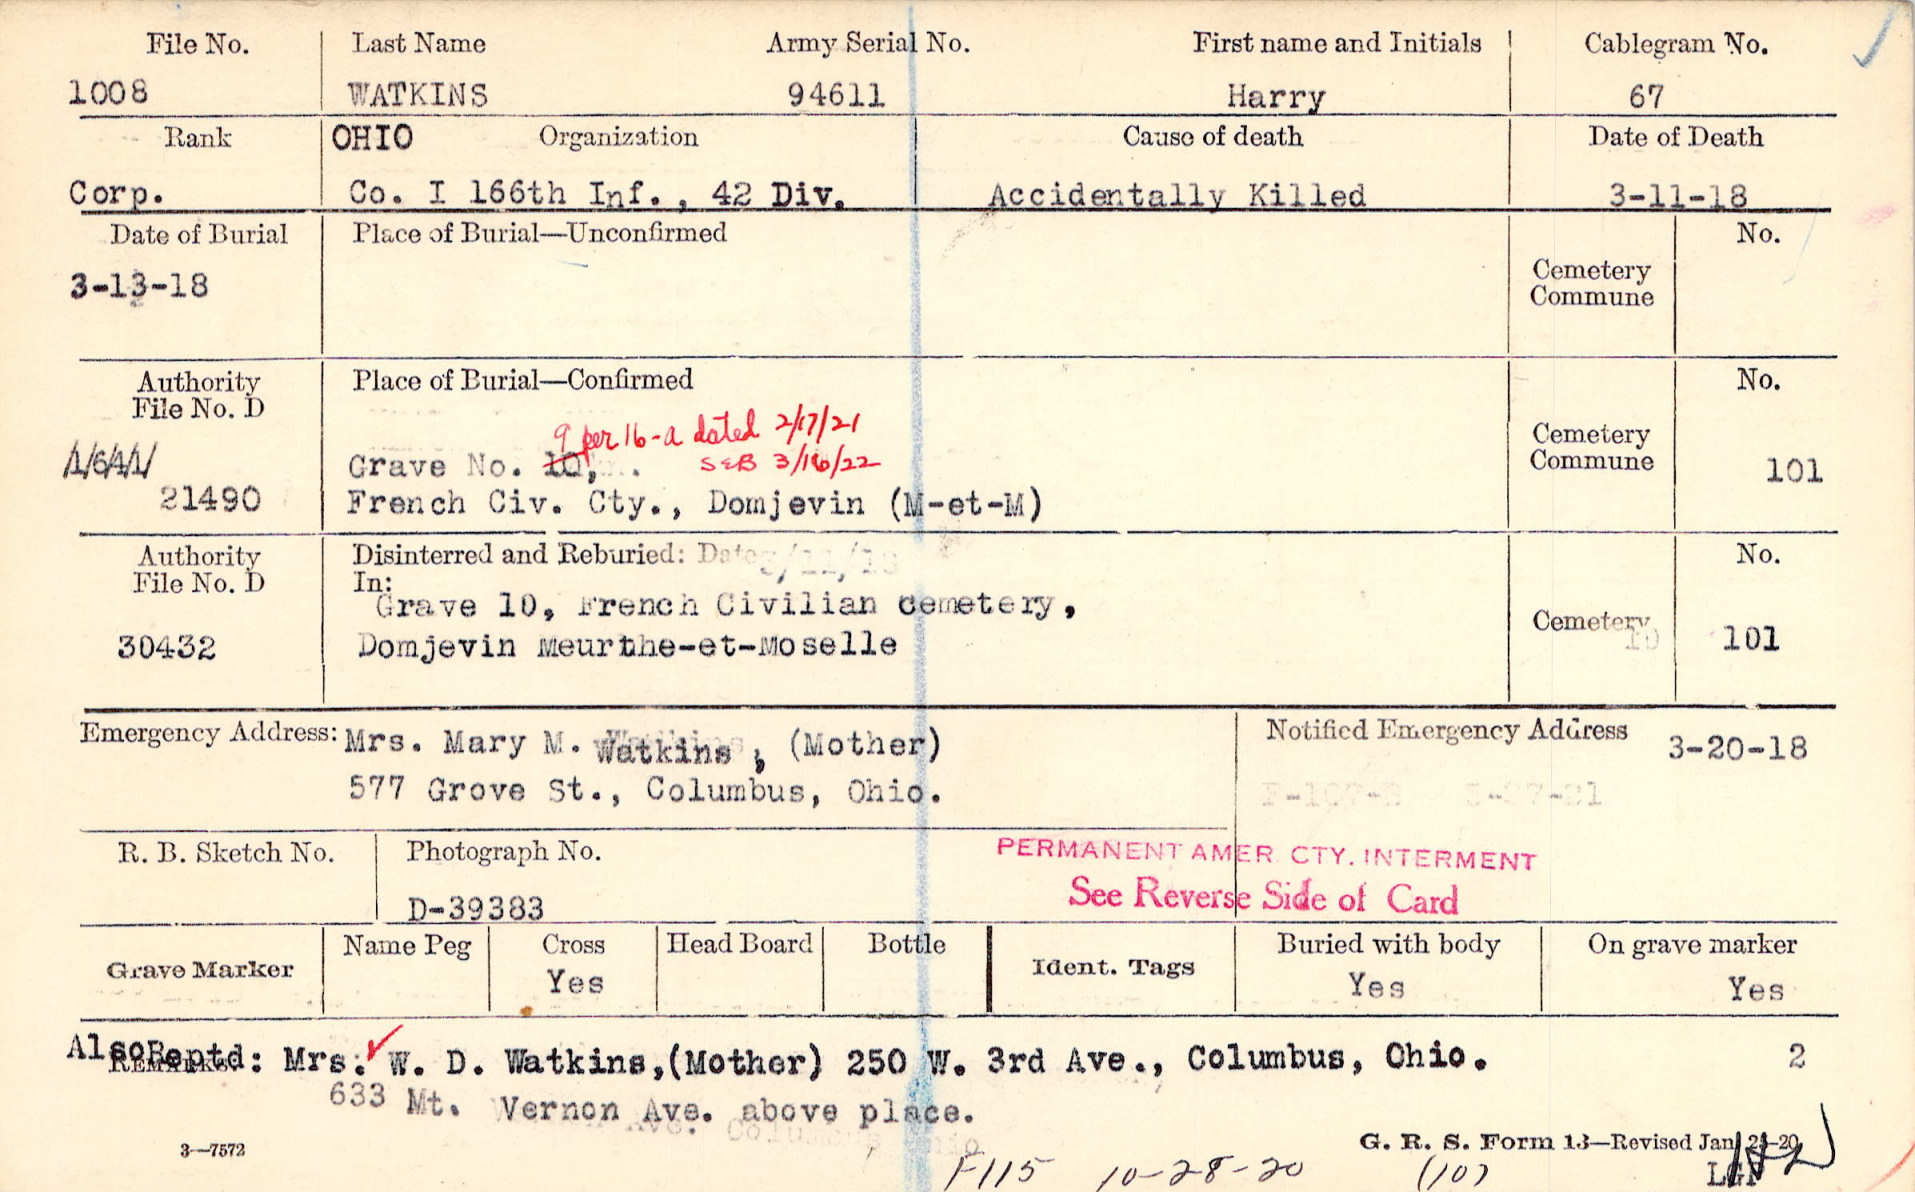 File No. Last Name Army Serial No. First name and Initials Cablegram No.
1008 WATKINS 94611 Harry 67
Rank OHIO Organization Cause of death Date of Death
Corp. Co. I 166th Inf., 42 Div. Accidentally Killed 3-11-18
Date of Burial Place of Burial—Unconfirmed No.
3-13-18
Cemetery
Commune
Authority
File No. D
Place of Burial—Confirmed No.
9 per 16-a dated 2/17/21
SEB 3/16/22
Grave No. 10,
21490 French Civ. Cty., Domjevin (M-et-M)
Cemetery
Commune 101
Authority
File No. D
Disinterred and Reburied: Date No.
In:
Grave 10, French Civilian cemetery,
30432 Domjevin Meurthe-et-Moselle
Cemetery 101
Emergency Address: Mrs. Mary M. Watkins, (Mother)
577 Grove St., Columbus, Ohio.
Notified Emergency Address 3-20-18
R. B. Sketch No. Photograph No.
D-39383
PERMANENT AMER. CTY. INTERMENT
See Reverse Side of Card
Grave Marker Name Peg Cross Head Board Bottle Ident. Tags Buried with body On grave marker
Yes Yes Yes
Also Reptd: Mrs. W. D. Watkins,(Mother) 250 W. 3rd Ave., Columbus, Ohio. 2
633 Mt. Vernon Ave. above place.
3—7572 G. R. S. Form 13—Revised Jan
F115 10-28-20 (10)